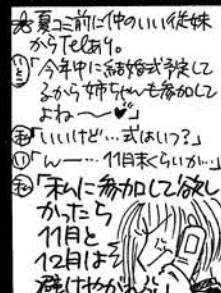 夏コミ前に仲のいい従妹
からTelあり。
いとこ「今年中に結婚式予定して
るから姉ちゃんも参加して
よね〜〜♥」
私「いいけど…式はいつ?」
い「んー…11月末くらいか…」
私「私に参加して欲し
かったら
11月と
12月は
避けやがれ